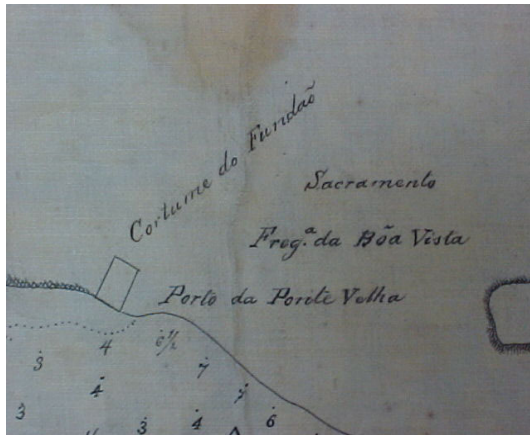 Cortume do Fundaõ
Sacramento
Freg.ª da Bõa Vista
Porto da Ponte Velha
3 4 6½
4 7
3 3 4 7 6